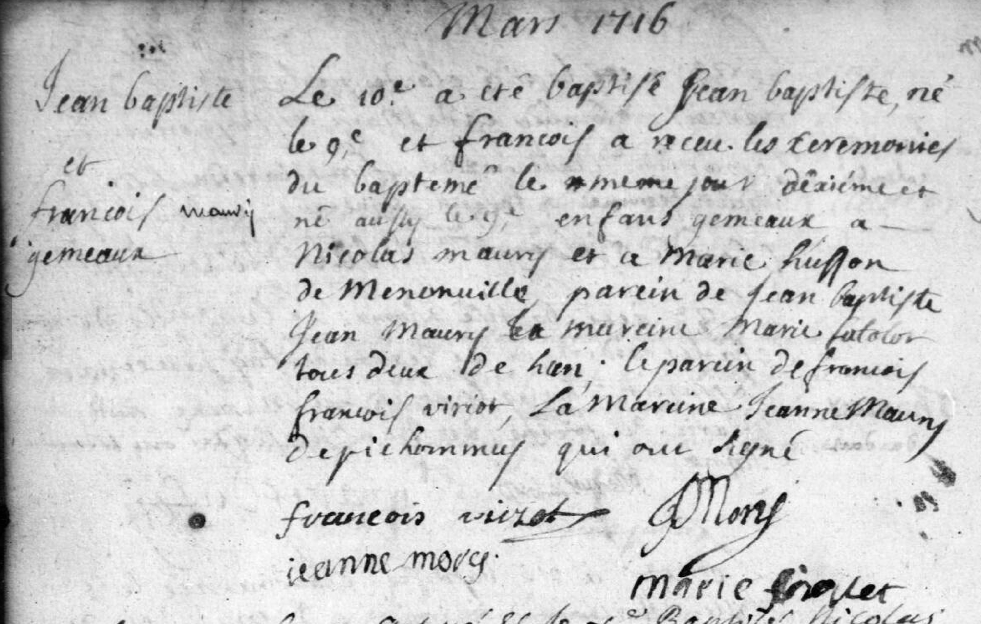 Mars 1716
Jean baptiste
et
francois maury
gemeaux
Le 10.e a eté baptisé Jean baptiste, né
le 9,e et francois a receu les ceremonies
du bapteme le meme jour dixiéme et
né aussy le 9,e enfans gemeaux a
Nicolas maury et a Marie husson
de Menonville, parein de Jean baptiste
Jean Maury La mareine Marie
tous deux de han; le parein de francois
francois viriot, La Mareine Jeanne Maury
de pichommey qui ont signé
francois virzot JMory
jeanne mory
marie
Baptisé Nicolas